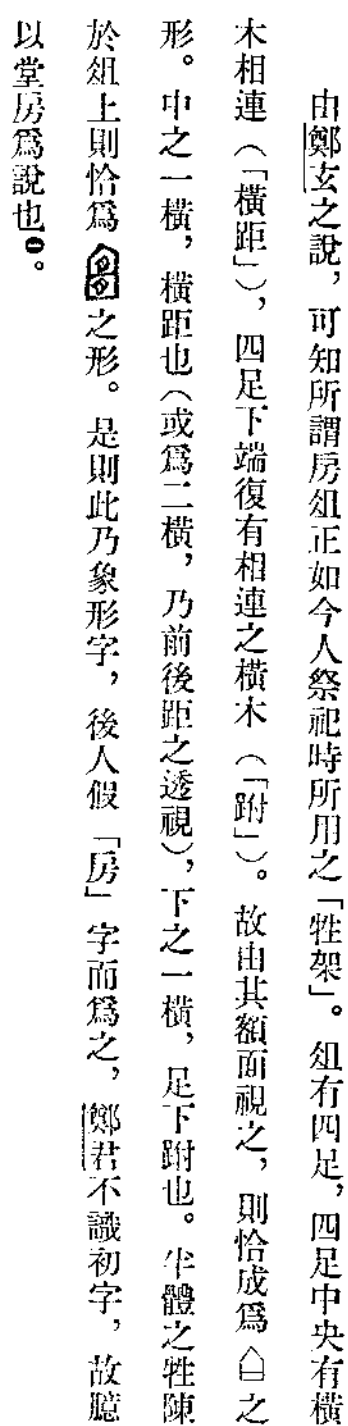 由鄭玄之說，可知所謂房俎正如今人祭祀時所用之「牲架」。俎有四足，四足中央有橫
木相連（「橫距」），四足下端復有相連之橫木（「跗」）。故由其額面視之，則恰成爲之
形。中之一橫，橫距也（或爲二橫，乃前後距之透視），下之一橫，足下跗也。半體之牲陳
於俎上則恰爲之形。是則此乃象形字，後人假「房」字而爲之，鄭君不識初字，故臆
以堂房爲說也㊀。